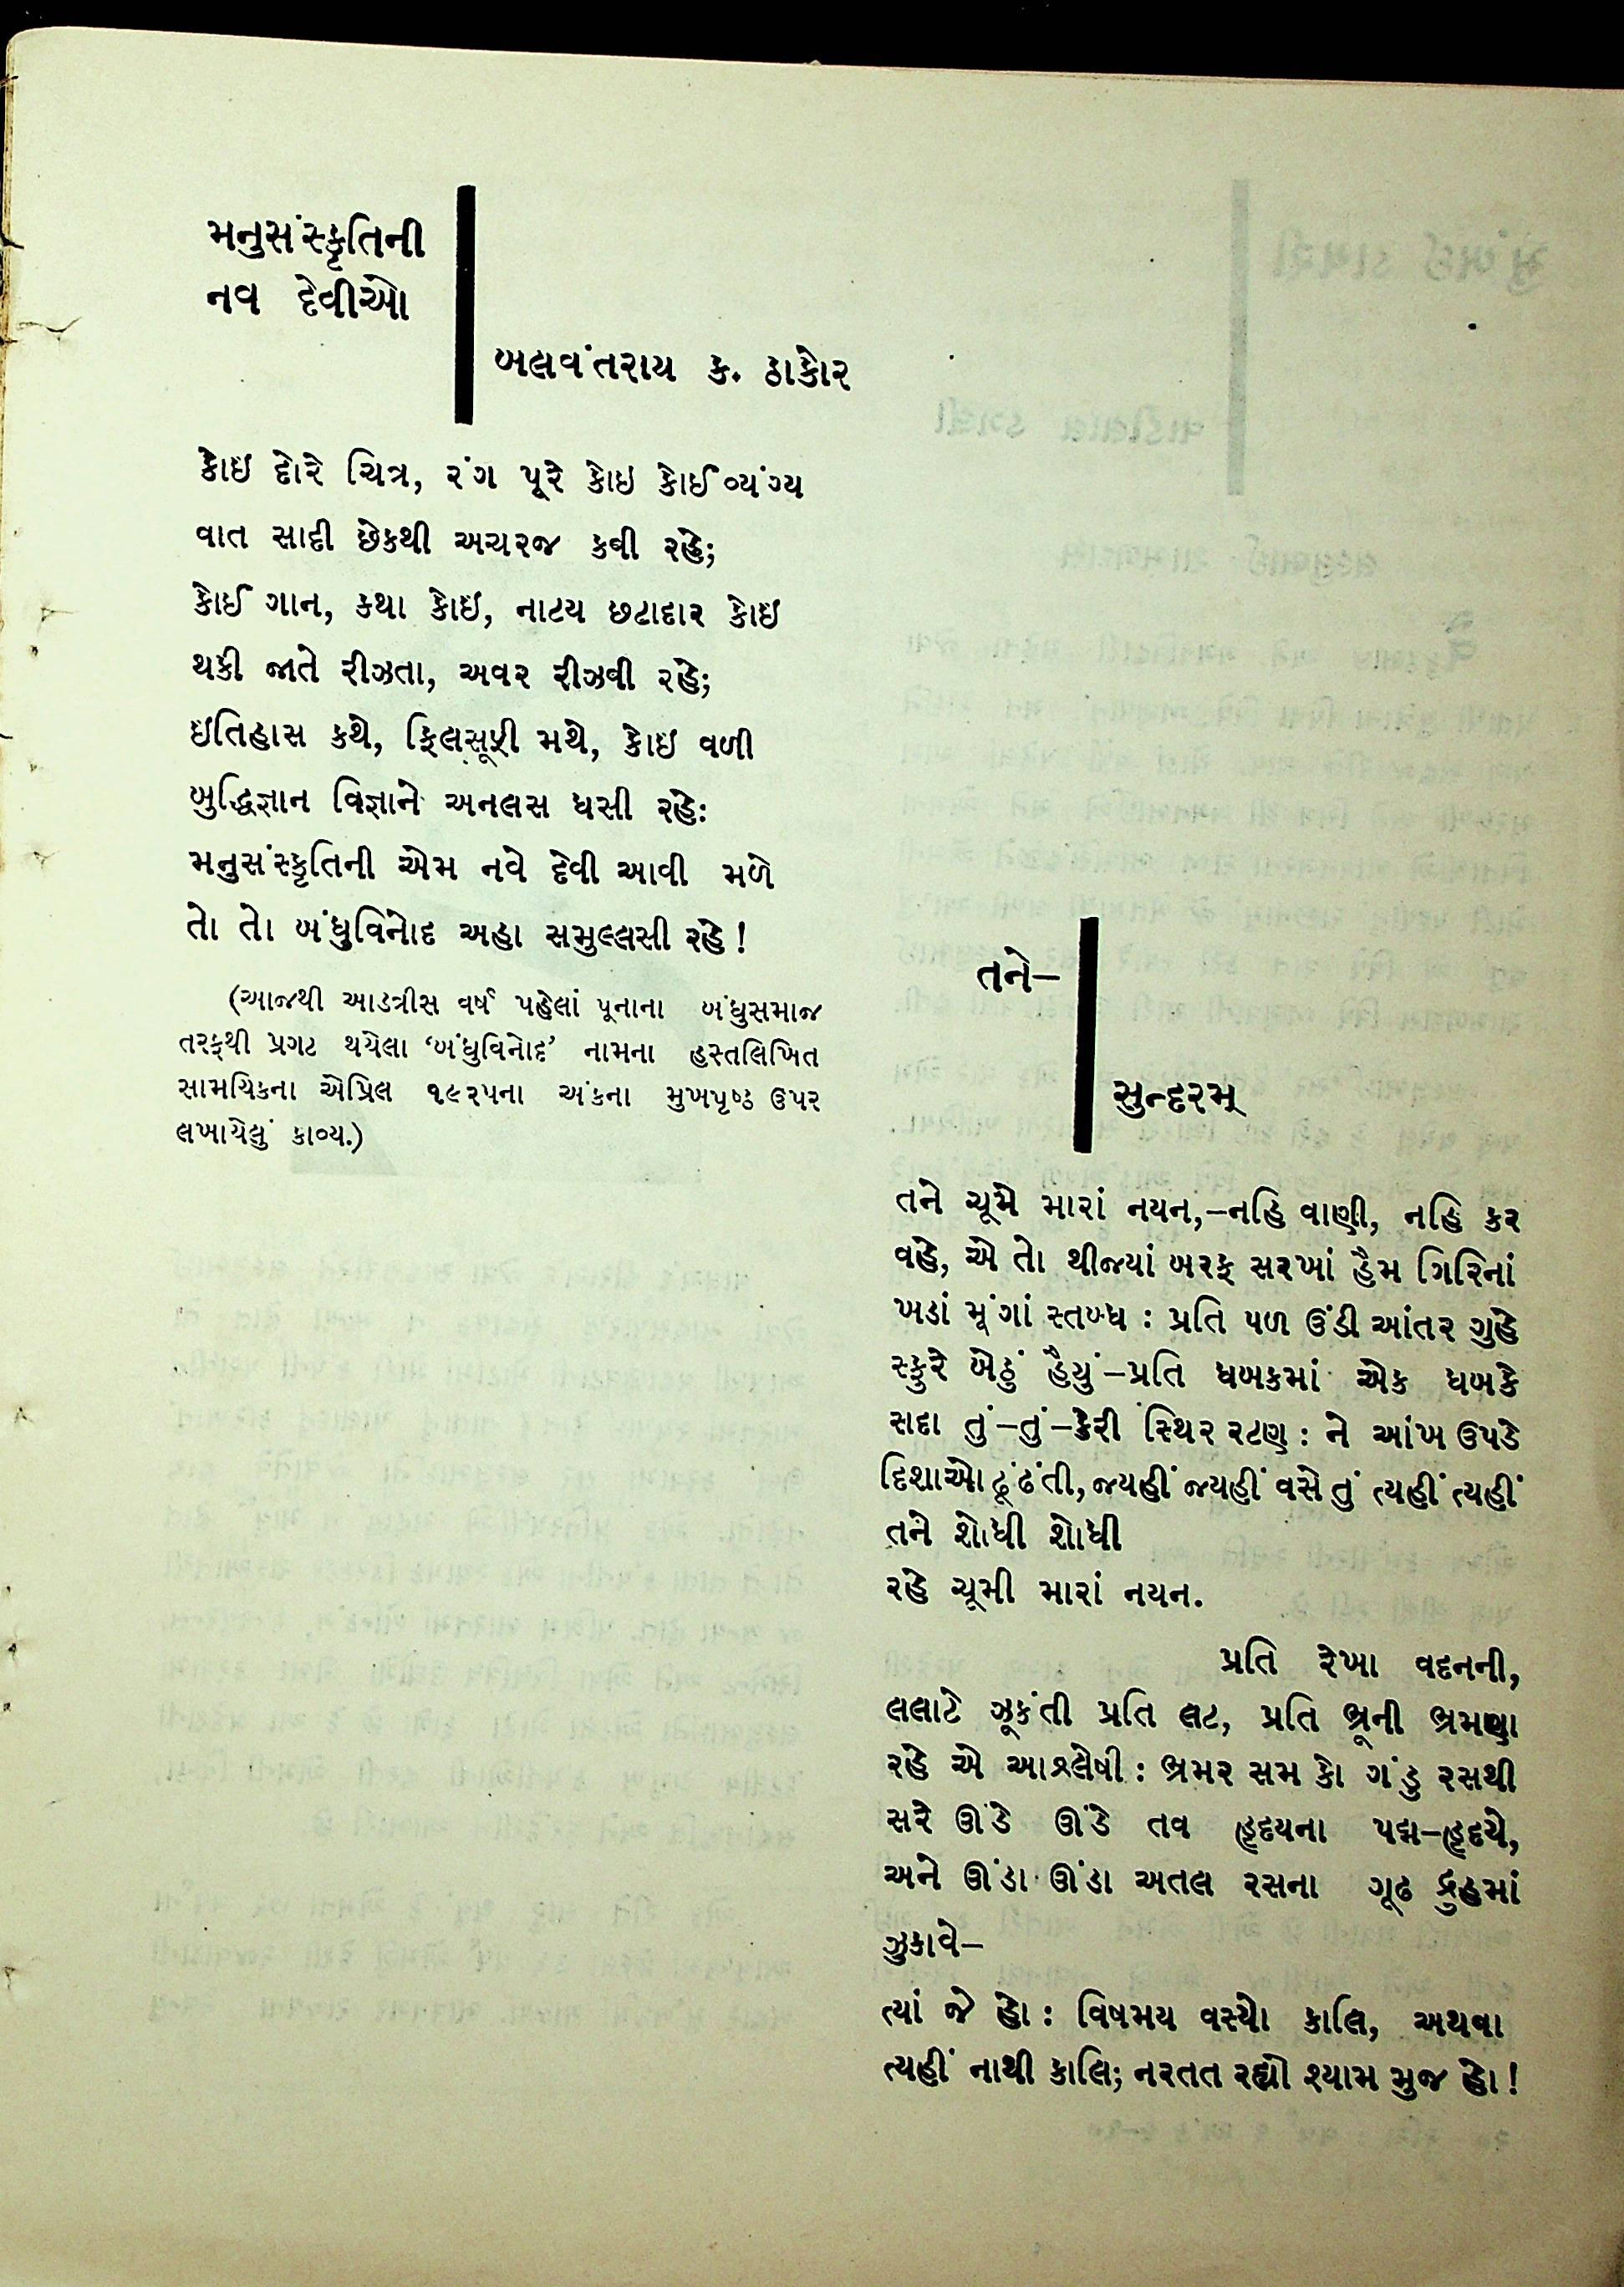 મનુસંસ્કૃતિની
નવ દેવીઓ
બલવંતરાય ક. ઠાકોર
કોઇ દોરે ચિત્ર, રંગ પૂરે કોઇ કોઈ વ્યંગ્ય
વાત સાદી છેકથી અચરજ કવી રહે;
કોઈ ગાન, કથા કોઇ, નાટય છટાદાર કોઇ
થકી જાતે રીઝતા, અવર રીઝવી રહે;
ઇતિહાસ કથે, ફિલસૂફી મથે, કોઇ વળી
બુદ્ધિજ્ઞાન વિજ્ઞાને અનલસ ધસી રહેઃ
મનુસંસ્કૃતિની એમ નવે દેવી આવી મળે
તો તો બંધુવિનોદ અહા સમુલ્લસી રહે!
(આજથી આડત્રીસ વર્ષ પહેલાં પૂનાના બંધુસમાજ
તરફથી પ્રગટ થયેલા ‘બંધુવિનોદ’ નામના હસ્તલિખિત
સામયિકના એપ્રિલ ૧૯૨૫ના અંકના મુખપૃષ્ઠ ઉપર
લખાયેલું કાવ્ય.)
તને–
સુન્દરમ્
તને ચૂમે મારાં નયન,–નહિ વાણી, નહિ કર
વહે, એ તો થીજ્યાં બરફ સરખાં હૈમ ગિરિનાં
ખડાં મૂંગાં સ્તબ્ધ : પ્રતિ પળ ઉંડી આંતર ગુહે
સ્ફુરે બેઠું હૈયું–પ્રતિ ધબકમાં એક ધબકે
સદા તું–તું–કેરી સ્થિર રટણ : ને આંખ ઉપડે
દિશાઓ ઢૂંઢંતી, જ્યહીં જ્યહીં વસે તું ત્યહીં ત્યહીં
તને શોધી શોધી
રહે ચૂમી મારાં નયન.
પ્રતિ રેખા વદનની,
લલાટે ઝૂકંતી પ્રતિ લટ, પ્રતિ ભ્રૂની ભ્રમણા
રહે એ આશ્લેષી : ભ્રમર સમ કો ગંડુ રસથી
સરે ઊંડે ઊંડે તવ હૃદયના પદ્મ–હૃદયે,
અને ઊંડા ઊંડા અતલ રસના ગૂઢ કુહમાં
ઝુકાવે–
ત્યાં જે હો : વિષમય વસ્યો કાલિ, અથવા
ત્યહીં નાથી કાલિ; નરતત રહ્યો શ્યામ મુજ હો!